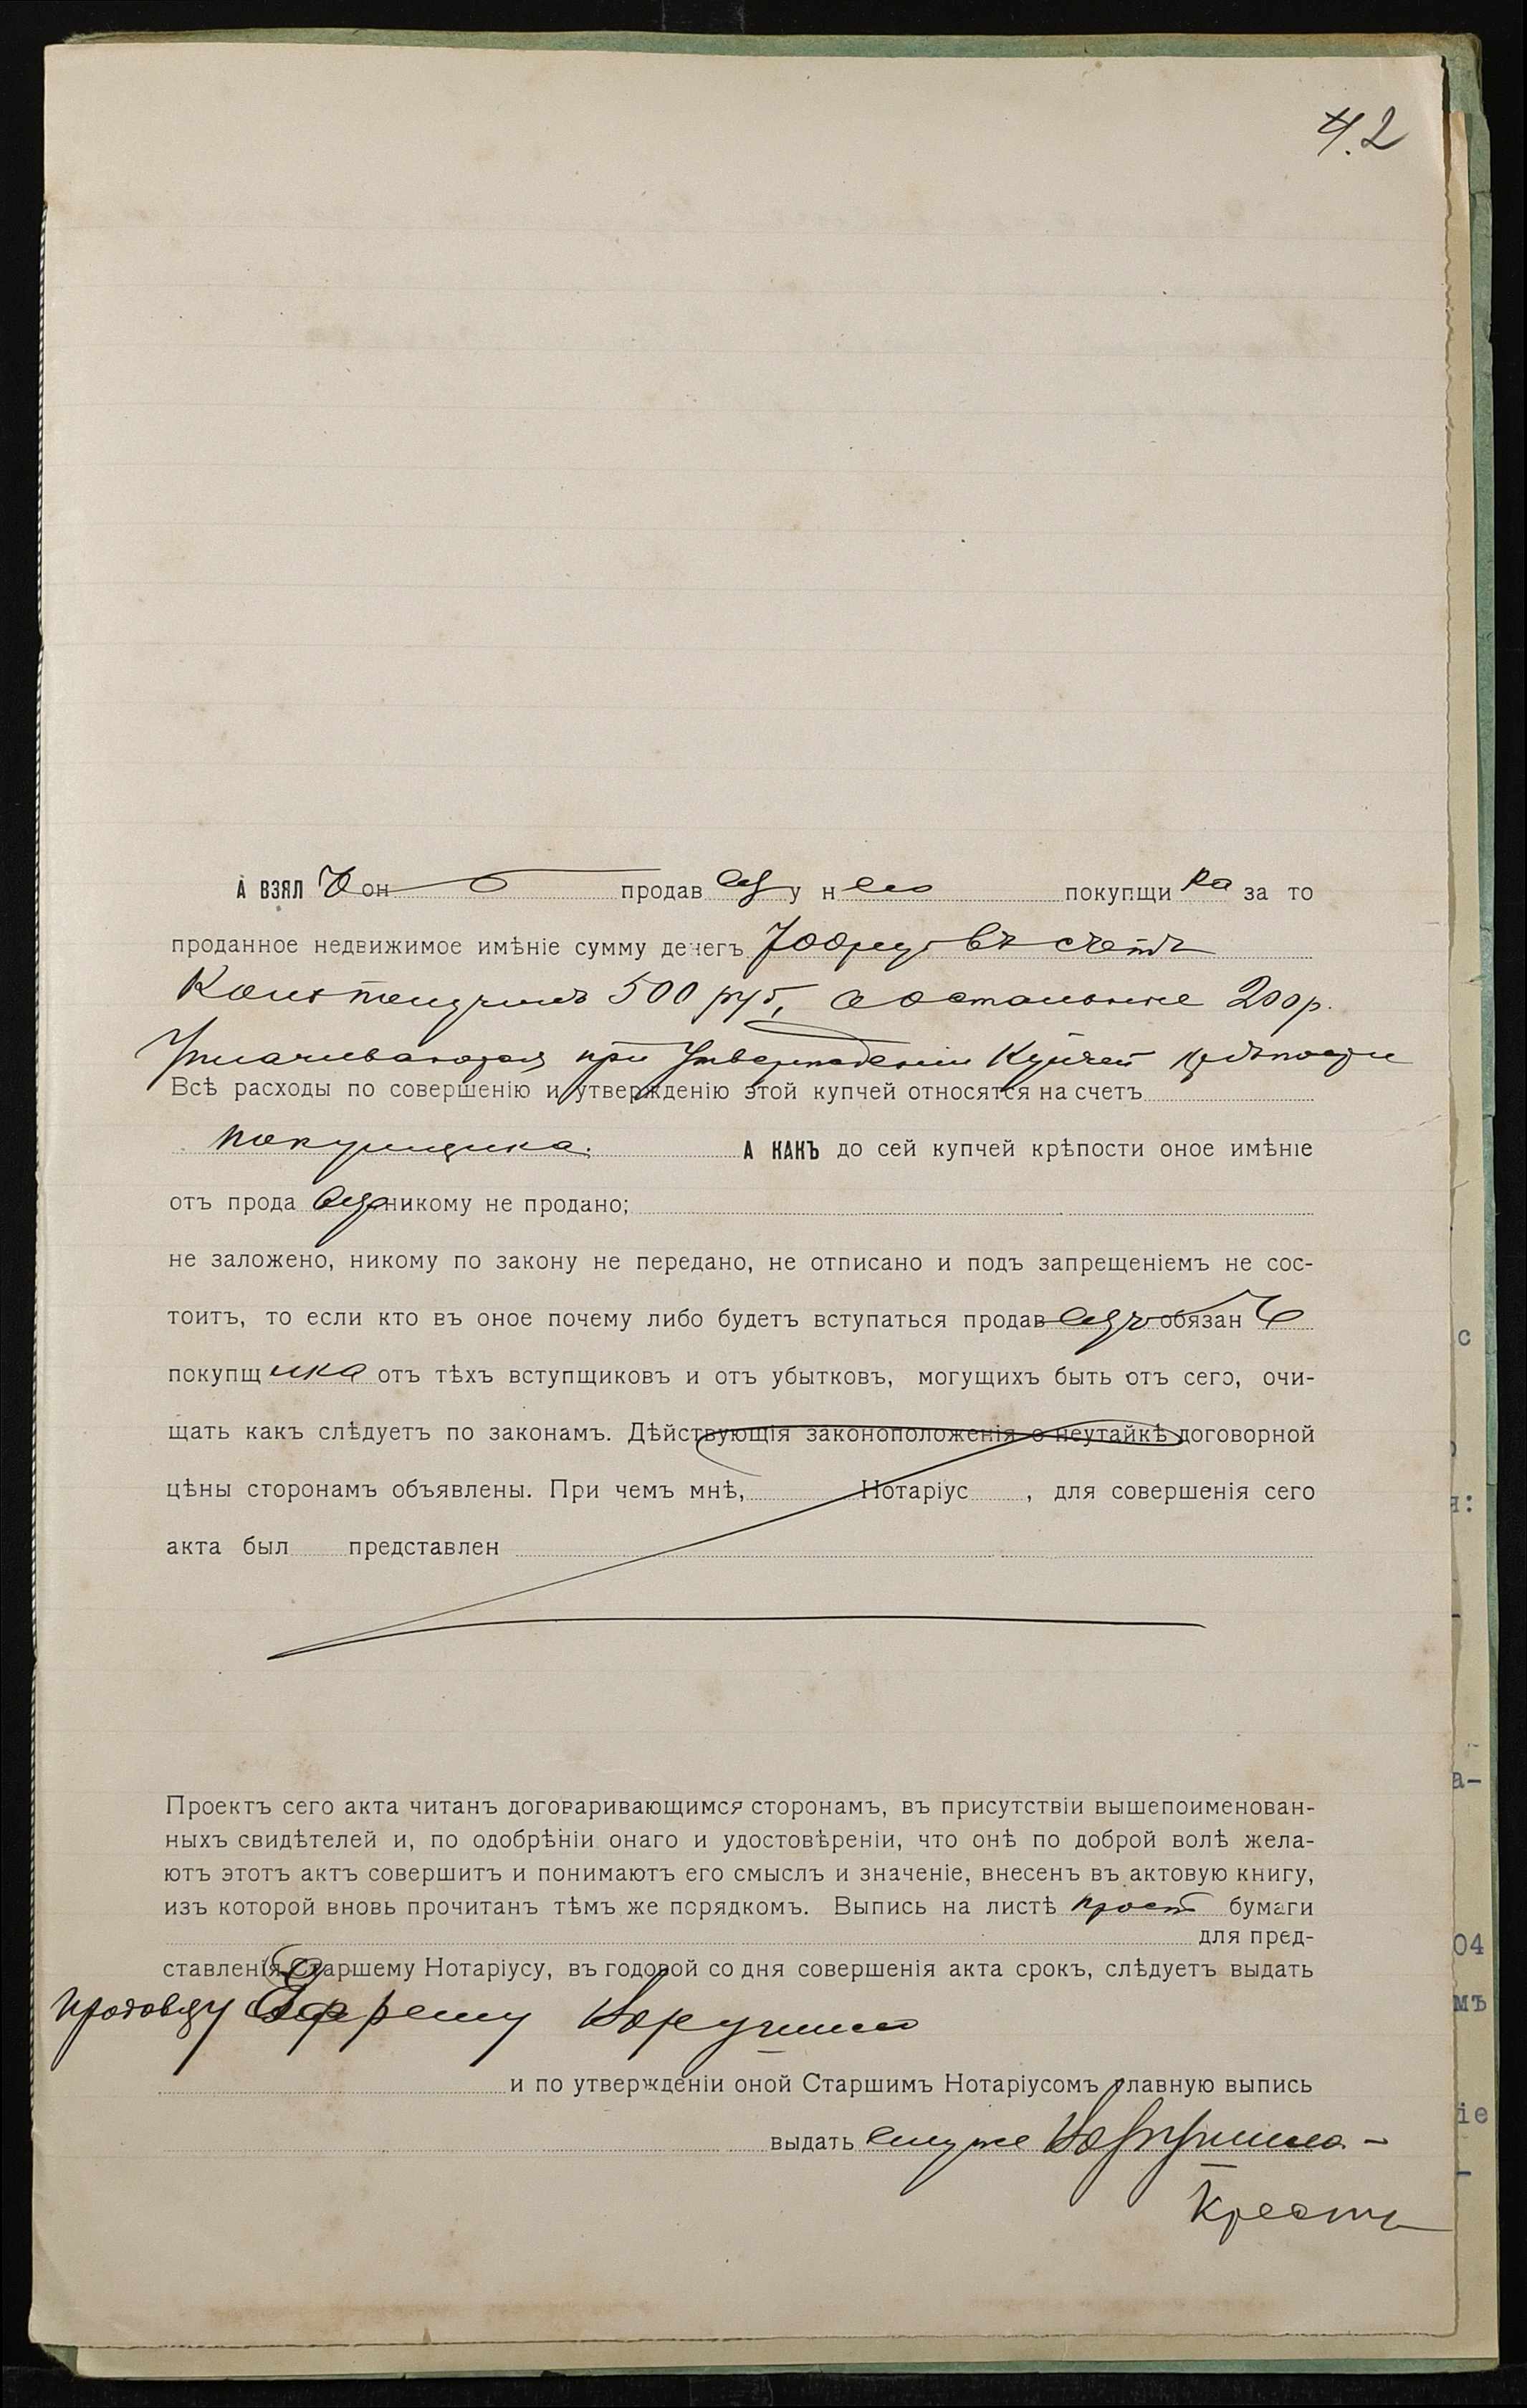 4.2
А ВЗЯЛЪ онъ продавецъ у него покупщика за то
проданное недвижимое имѣніе сумму денегъ 700 руб въ счетъ
500 руб, а остальные 200 р.
Уплачиваются при утвержденіи Купчей крѣпости
Всѣ расходы по совершенію и утвержденію этой купчей относятся на счетъ
покупщика. А КАКЪ до сей купчей крѣпости оное имѣніе
отъ прода вца никому не продано;
не заложено, никому по закону не передано, не отписано и подъ запрещеніемъ не сос-
тоитъ, то если кто въ оное почему либо будетъ вступаться продавецъ обязанъ
покупщика отъ тѣхъ вступщиковъ и отъ убытковъ, могущихъ быть отъ сего, очи-
щать какъ слѣдуетъ по законамъ. Дѣйствующія законоположенія о неутайкѣ договорной
цѣны сторонамъ объявлены. При чемъ мнѣ, Нотаріус , для совершенія сего
акта был представлен
Проектъ сего акта читанъ договаривающимся сторонамъ, въ присутствіи вышепоименован-
ныхъ свидѣтелей и, по одобрѣніи онаго и удостовѣреніи, что онѣ по доброй волѣ жела-
ютъ этотъ актъ совершитъ и понимаютъ его смыслъ и значеніе, внесенъ въ актовую книгу,
изъ которой вновь прочитанъ тѣмъ же порядкомъ. Выпись на листѣ прост бумаги
для пред-
ставленія Старшему Нотаріусу, въ годовой со дня совершенія акта срокъ, слѣдуетъ выдать
продавцу
и по утвержденіи оной Старшимъ Нотаріусомъ главную выпись
выдать ему же
Крестъ